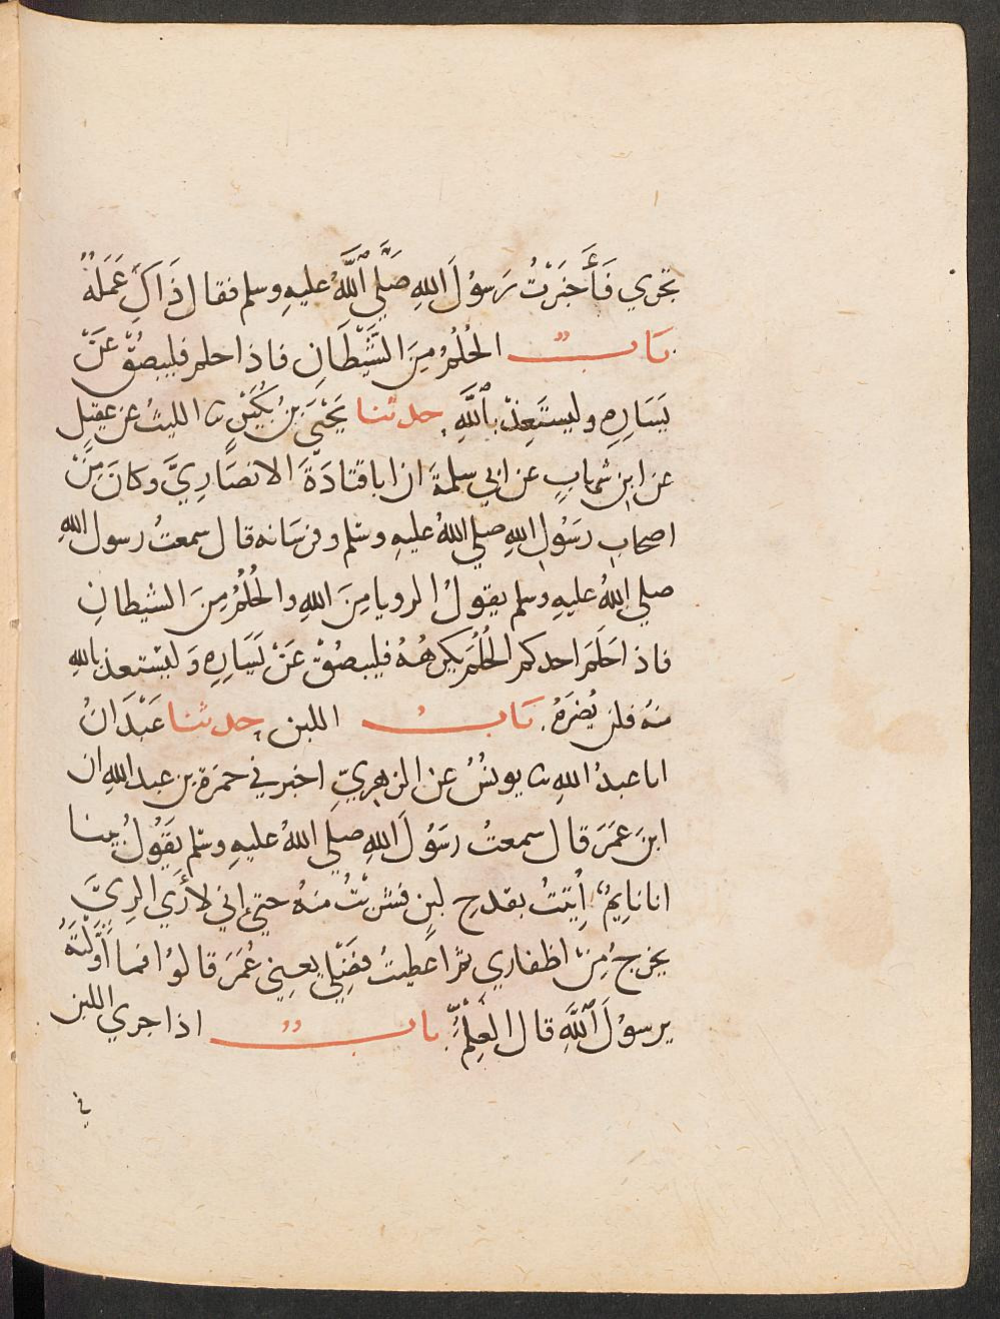 تجري فَأَخبَرْتُ رَسوُلَ اللهِ صَلَّي اللَّهُ عليهِ وسلم فقال ذَاكِ عَمَلهُ
بَابٌ الحُلْمُ مِنَ الشَّيْطَانِ فاذا حلم فليبصُقْ عَنْ
يَسَارِهِ وليستَعِذْ بِاللَّهِ حدثنا يَحْيَى بنُ بُكَيْرٍ نا الليثُ عن عقيلٍ
عن ابنِ شهابٍ عن ابي سلمةَ ان ابا قتَادَةَ الانصَارِيَّ وكانَ مِنْ
اصحابِ رسَوُلِ اللهِ صلي اللهُ عليهِ وسّلم وفرسَانه قال سمعتُ رسول اللهِ
صلي اللهُ عليهِ وسلم يقولُ الرويا مِنَ اللهِ والحُلْمُ مِنَ الشيطانِ
فاذا حَلَمَ احدكم الحُلُمَ يكرهُهُ فليبصُقْ عَنْ يَسَارِهِ وَليَسْتعذ باللهِ
منهُ فلن يُضرَهُ بَابُ اللبن حدثنا عَبْدَانُ
انا عبدُ اللهِ نا يونسُ عن الزهريِّ اخبرني حمزة بن عبد اللهِ ان
ابنَ عمَرَ قال سمعتُ رسَوُلَ اللهِ صلي اللهُ عليهِ وسّلم يقَوُلُ بينا
انا نايِمٌ اُتِيتُ بقدحِ لبنٍ فشربْتُ منهُ حتي إني لأرَي الرِيَّ
يخرجُ مِنْ اظفاري ثم اعطيتُ فضَلِي يعِني عُمَرَ قالوُا فما أوَّلْتَهُ
يرسوُلَ اللَّهِ قال العِلْمُ بابٌ اذا جري اللبن
في